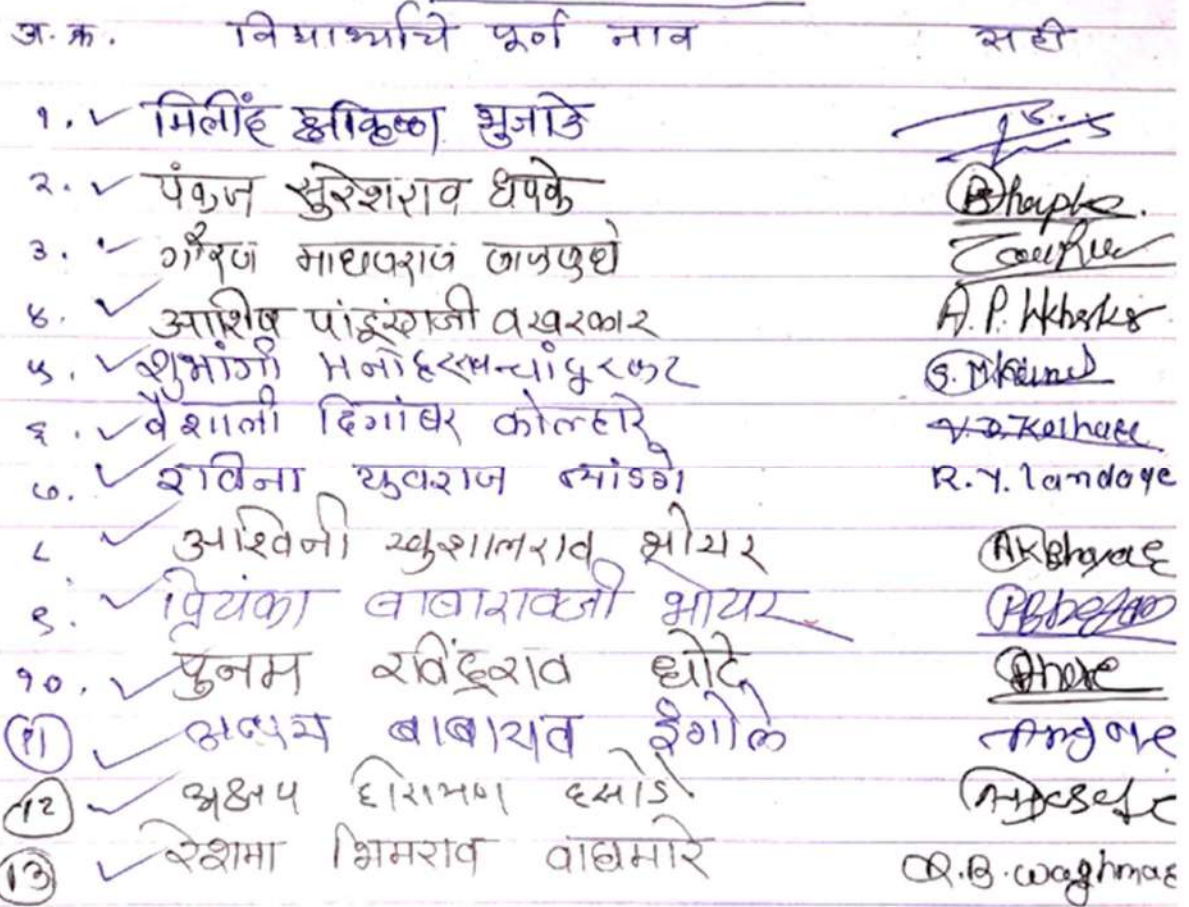 अ. क्र. विद्यार्थ्याचे पूर्ण नाव सही
१. मिलींद श्रीकृष्ण भुजाडे
२. पंकज सुरेशराव धपके Bhapke.
३. गौरव माधवराव
४. आशिष पांडूरंगजी वखरकार A.P. Wkharkar
५. शुभांगी मनोहरराव चांदुरकर
६. वैशाली दिगांबर कोल्हारे V.D. Kolhare
७. राविना युवराज लांडगे R.Y. landage
८ अश्विनी खुशालराव भोयर AKBhoyar
९. प्रियंका बाबारावजी भोयर
१०. पुनम रविंद्रराव धोटे Dhote
११ बाबाराव इंगोले Ingole
12 अक्षय हिरामण ढसाडे
13 रेशमा भिमराव वाघमारे R.B. waghmae